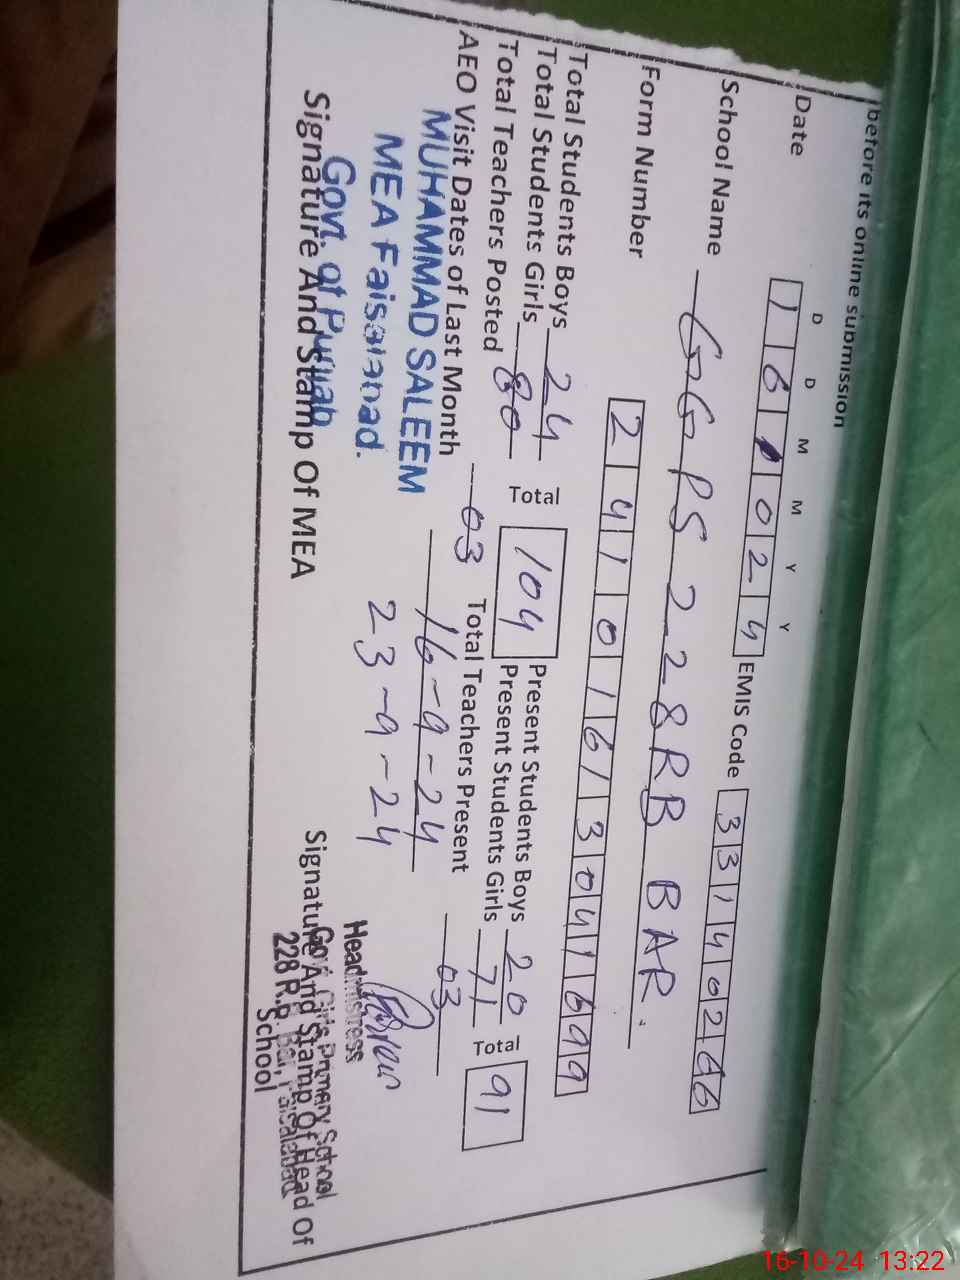 before its online submission
D D M M Y Y
Date 1 6 1 0 2 4 EMIS Code 3 3 1 4 0 2 6 6
School Name GGPS 228RB BAR.
Form Number 2 4 1 0 1 6 1 3 0 4 1 6 9 9
Total Students Boys 24 Total 104 Present Students Boys 20 Total 91
Total Students Girls 80 Present Students Girls 71
Total Teachers Posted 03 Total Teachers Present 03
AEO Visit Dates of Last Month 16-9-24
23-9-24
MUHAMMAD SALEEM
MEA Faisalabad.
Govt. of Punjab
Signature And Stamp Of MEA
Headmistress
Govt. Girls Primary School
228 R.B. Bar, Faisalabad
Signature And Stamp Of Head of
School
16-10-24 13:22